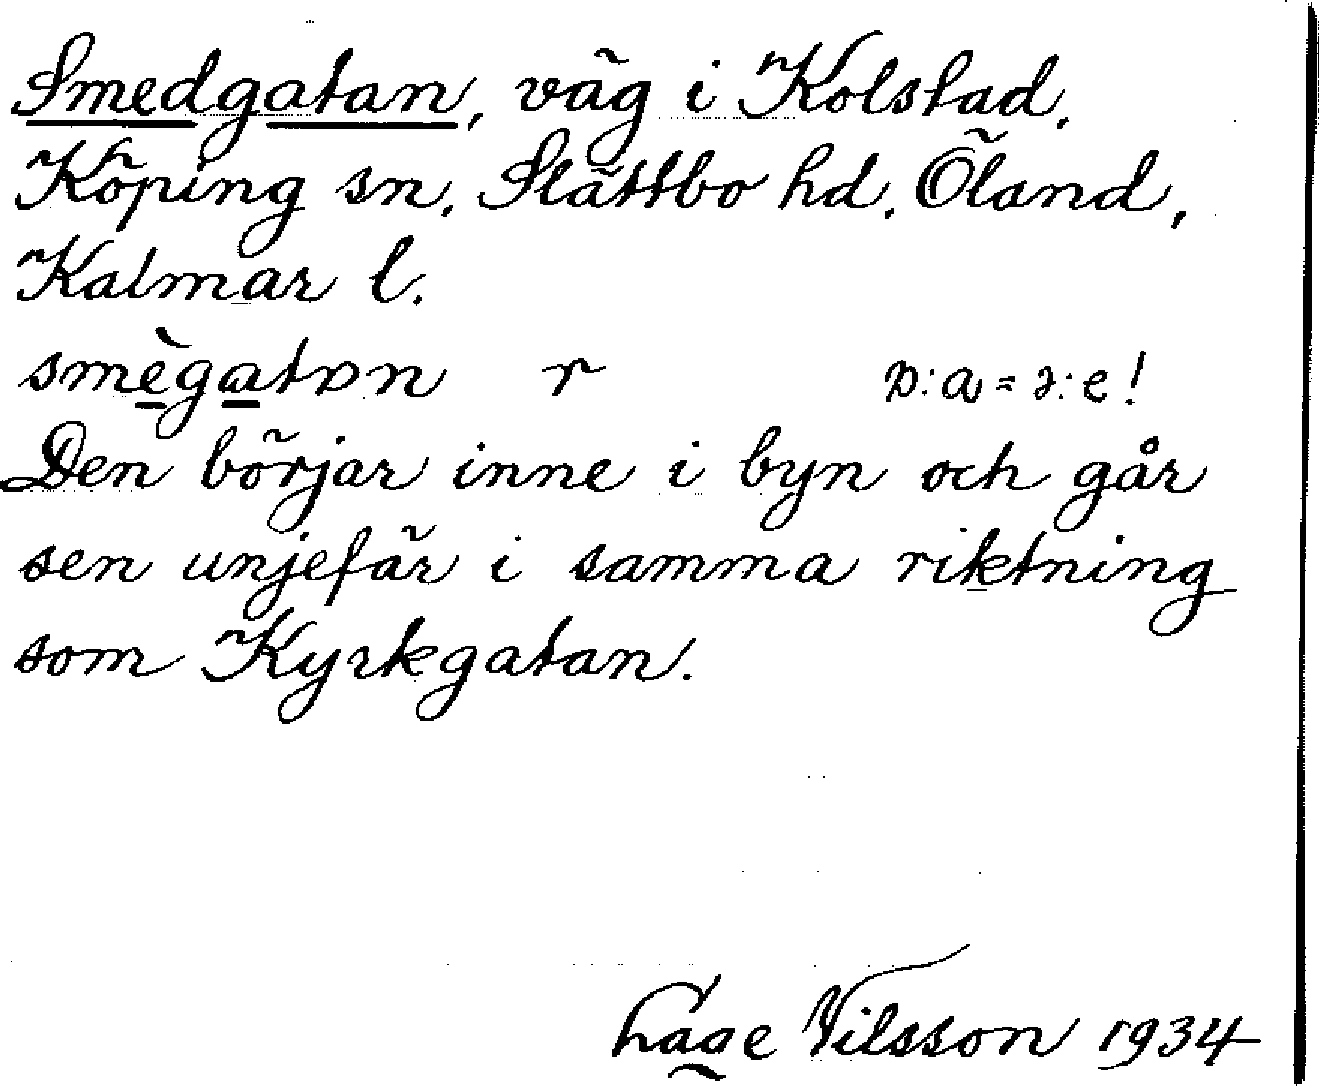 Smedgatan, väg i Kolstad,
Köping sn, Slättbo hd, Öland,
Kalmar l.
smègatɒn r ɒ:a = ə:e!
Den börjar inne i byn och går
sen unjefär i samma riktning
som Kyrkgatan.
Nilsson 1934